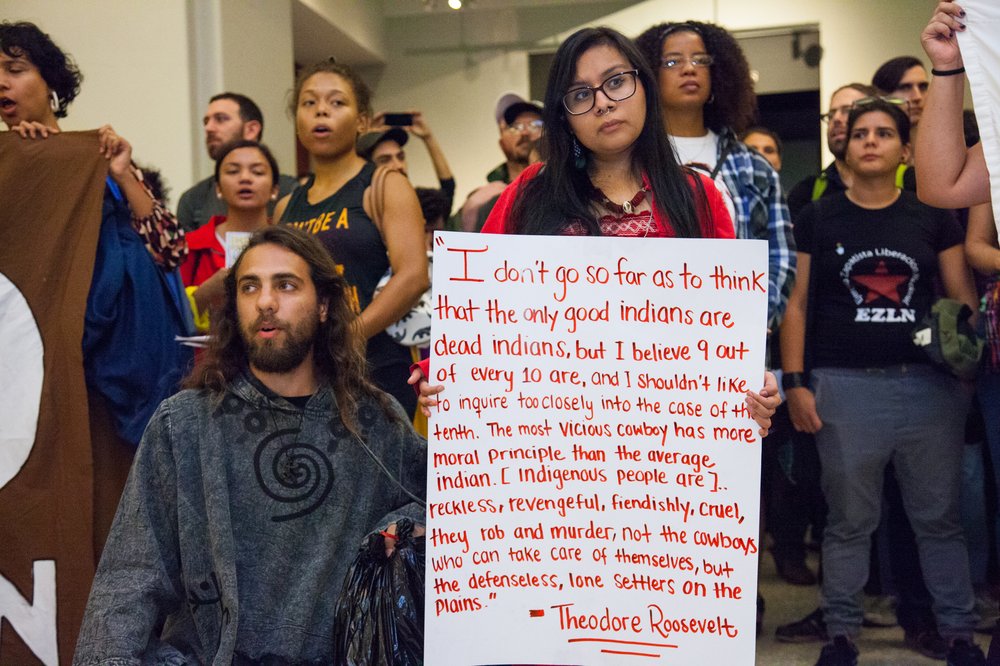 "I don't go so far as to think
that the only good indians are
dead indians, but I believe 9 out
of every 10 are, and I shouldn't like
to inquire too closely into the case of the
tenth. The most vicious cowboy has more
moral principle than the average
indian. [Indigenous people are]..
reckless, revengeful, fiendishly, cruel,
they rob and murder, not the cowboys
who can take care of themselves, but
the defenseless, lone settlers on the
plains."
- Theodore Roosevelt
Zapatista Liberacion
EZLN